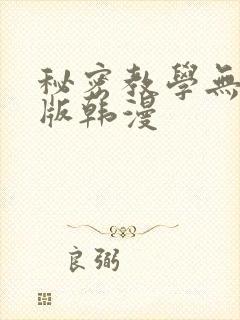 秘密教學無
版韩漫
良弼